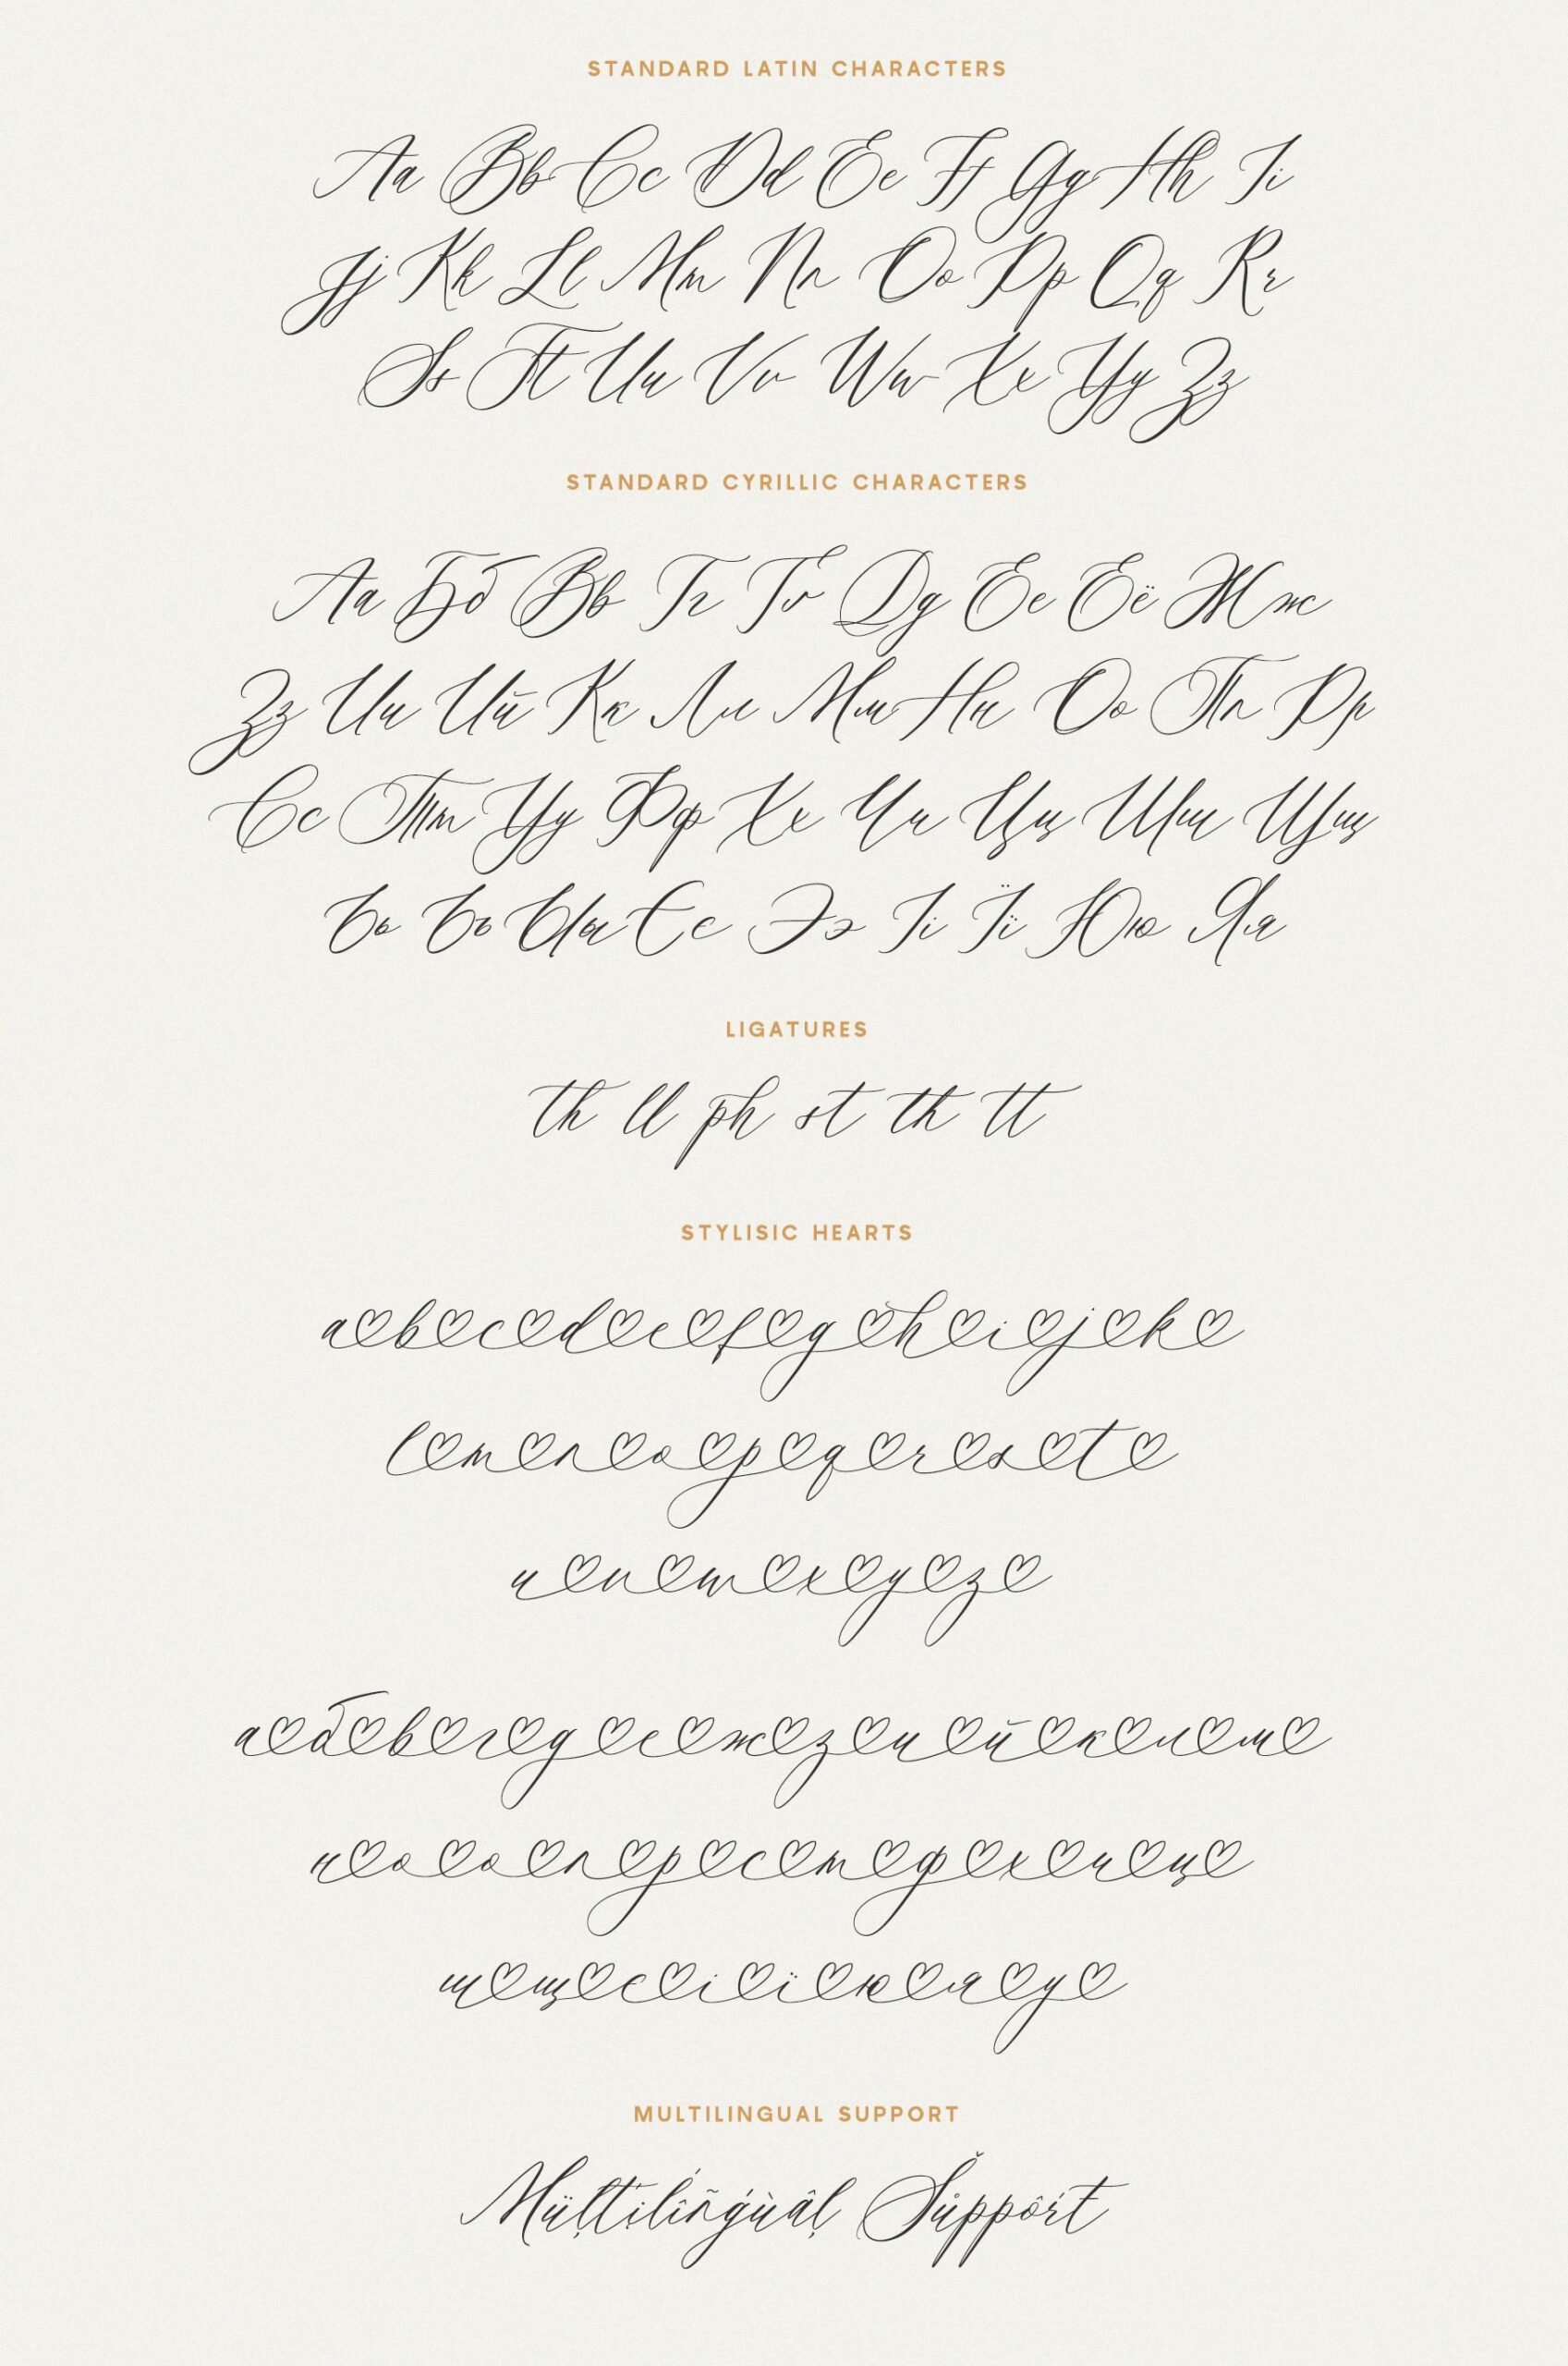 STANDARD LATIN CHARACTERS
Aa Bb Cc Dd Ee Ff Gg Hh Ii
Jj Kk Ll Mm Nn Oo Pp Qq Rr
Ss Tt Uu Vv Ww Xx Yy Zz
STANDARD CYRILLIC CHARACTERS
Аа Бб Вв Гг Ґґ Дд Ее Её Жж
Зз Ии Ий Кк Лл Мм Нн Оо Пп Рр
Сс Тт Уу Фф Хх Чч Цц Шш Щщ
Ьь Ъъ Ыы Єє Ээ Іі Її Юю Яя
LIGATURES
th ll ph st th tt
STYLISIC HEARTS
a♡b♡c♡d♡e♡f♡g♡h♡i♡j♡k♡
l♡m♡n♡o♡p♡q♡r♡s♡t♡
u♡v♡w♡x♡y♡z♡
а♡б♡в♡г♡д♡е♡ж♡з♡и♡й♡к♡л♡м♡
н♡о♡о♡п♡р♡с♡т♡ф♡х♡ч♡ц♡
ш♡щ♡є♡і♡ї♡ю♡я♡у♡
MULTILINGUAL SUPPORT
Müļtịlîñģùâļ Šůppôŕt